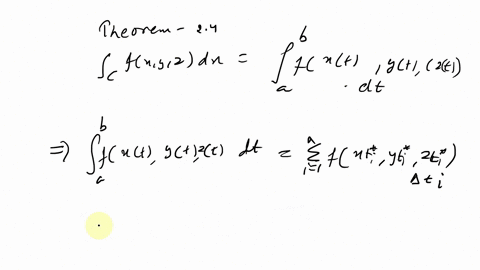 Theorem - 2.4
∫_C f(x,y,z) dx = ∫_a^b f( x(t) , y(t), (z(t)) · dt
⇒ ∫_a^b f( x(t), y(t), z(t) dt = Σ_{i=1}^n f( xt_i^*, yt_i^*, zt_i^*) Δt_i